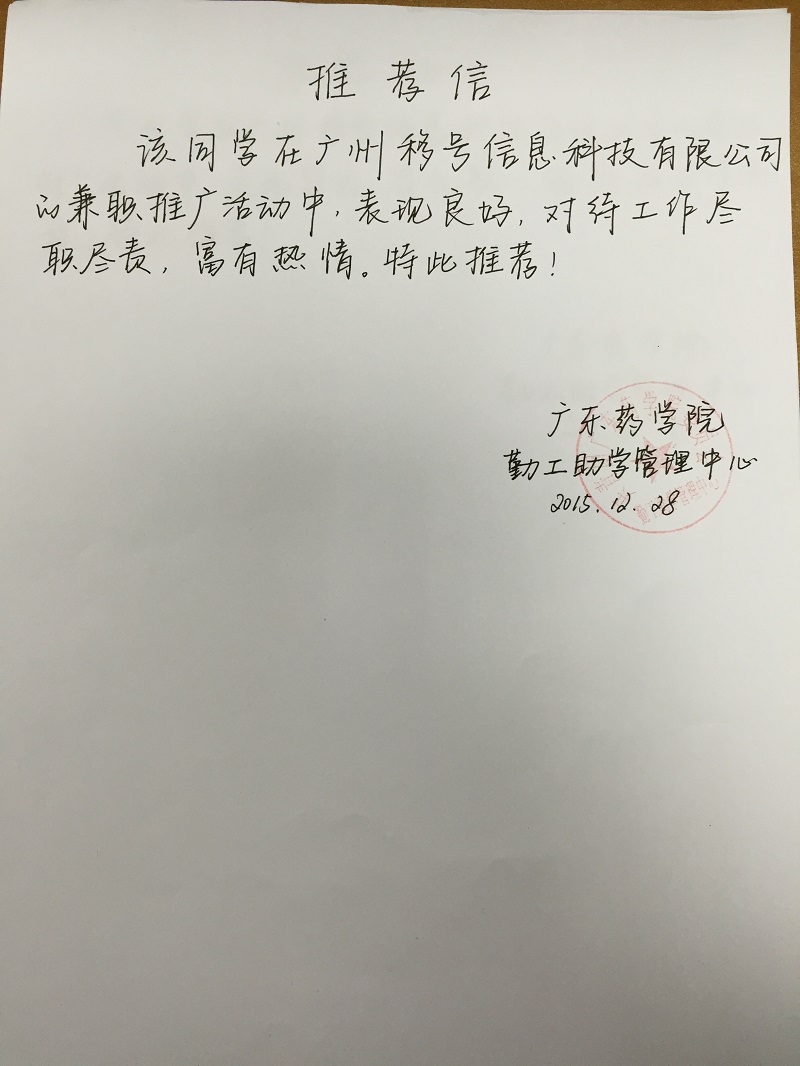 推荐信
该同学在广州移号信息科技有限公司
的兼职推广活动中，表现良好，对待工作尽
职尽责，富有热情。特此推荐！
广东药学院
勤工助学管理中心
2015.12.28